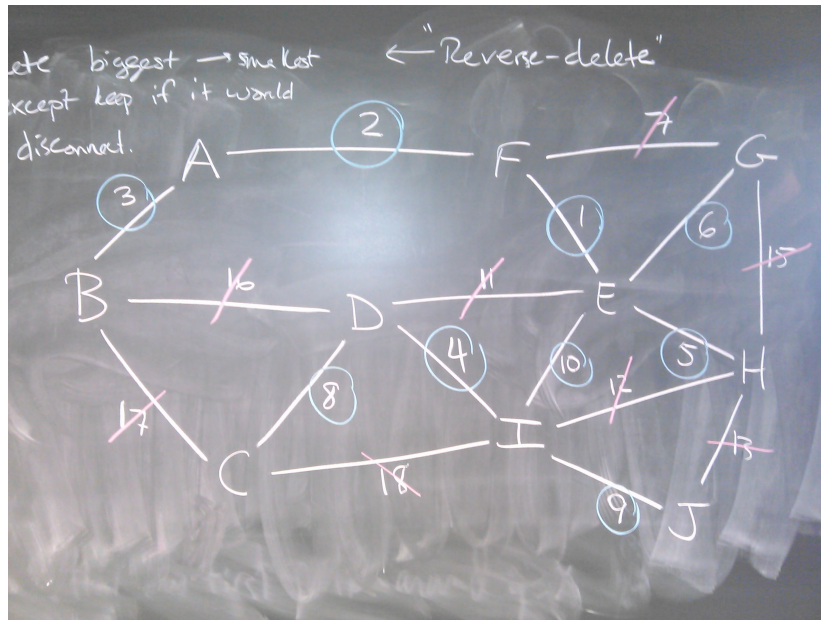 ete biggest → smallest ← "Reverse-delete"
except keep if it would
disconnect.
2
7
A
F
G
3
1
6
15
16
11
B
D
E
4
10
5
H
8
12
17
13
C
I
18
9
J